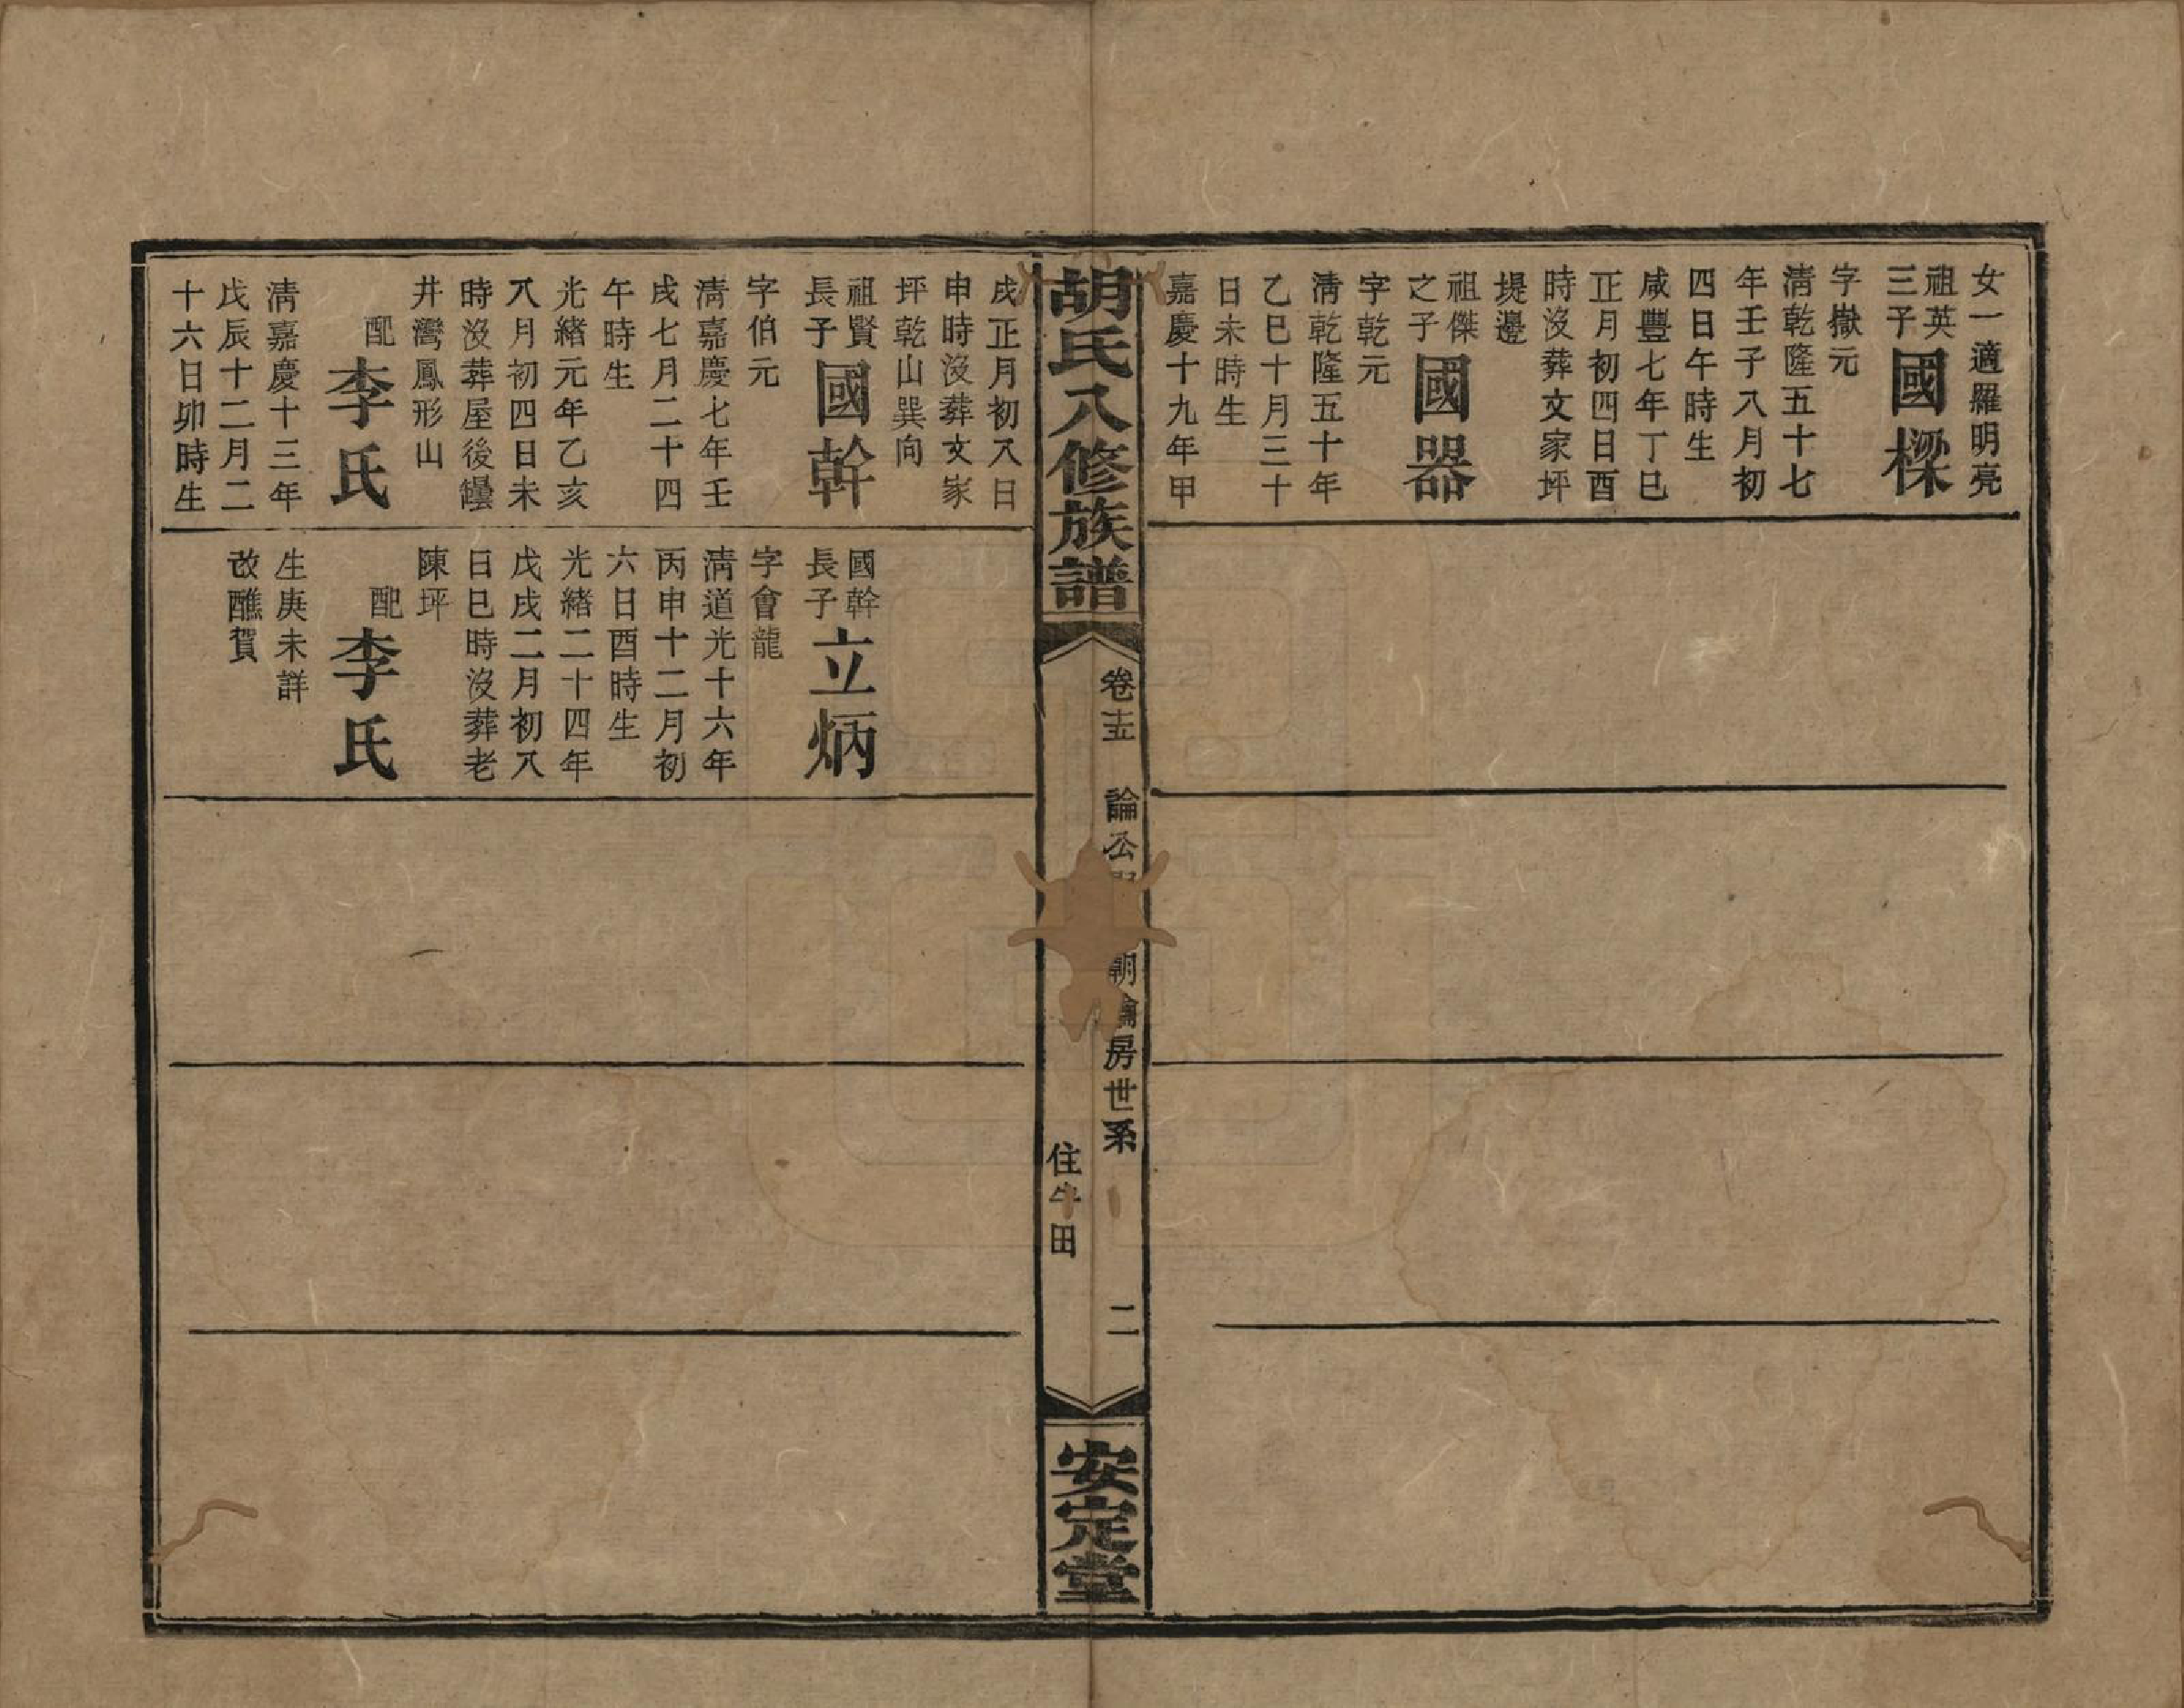 女一適羅明亮
祖英
三子
國樑
字嶽元
清乾隆五十七
年壬子八月初
四日午時生
咸豐七年丁巳
正月初四日酉
時沒葬文家坪
堤邊
祖傑
之子
國器
字乾元
清乾隆五十年
乙巳十月三十
日未時生
嘉慶十九年甲
胡氏八修族譜
卷十五
論公
朝
房世系
二
住牛田
安定堂
戌正月初八日
申時沒葬文家
坪乾山巽向
祖賢
長子
國幹
字伯元
清嘉慶七年壬
戌七月二十四
午時生
光緒元年乙亥
八月初四日未
時沒葬屋後罎
井灣鳳形山
配
李氏
清嘉慶十三年
戊辰十二月二
十六日卯時生
國幹
長子
立炳
字會龍
清道光十六年
丙申十二月初
六日酉時生
光緒二十四年
戊戌二月初八
日巳時沒葬老
陳坪
配
李氏
生庚未詳
改醮賀